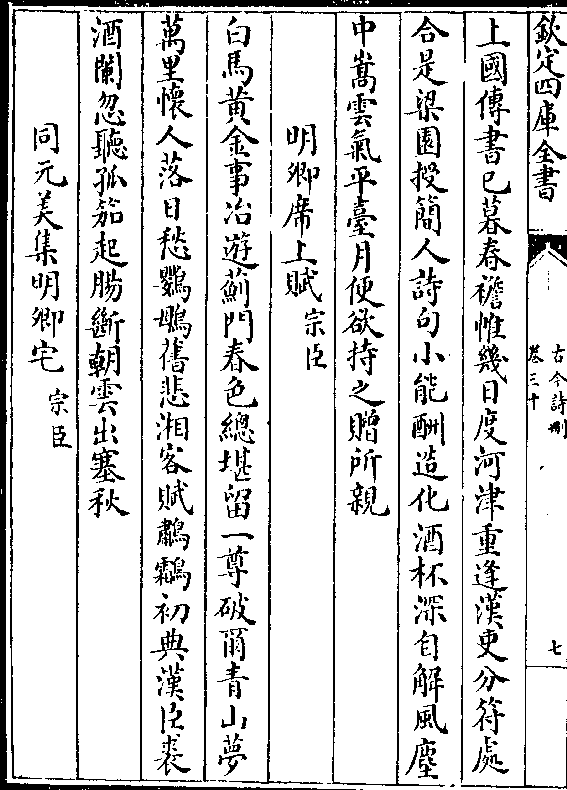 欽定四庫全書
古今詩刪
卷三十
七
上國傳書已暮春襜帷幾日度河津重逢漢吏分符處
合是梁園授簡人詩句小能酬造化酒杯深自解風塵
中嵩雲氣平臺月便欲持之贈所親
明卿席上賦 宗臣
白馬黄金事冶遊薊門春色總堪留一尊破爾青山夢
萬里懷人落日愁鸚鵡舊悲湘客賦鷫鸘初典漢臣裘
酒闌忽聽孤笳起腸斷朝雲出塞秋
同元美集明卿宅 宗臣